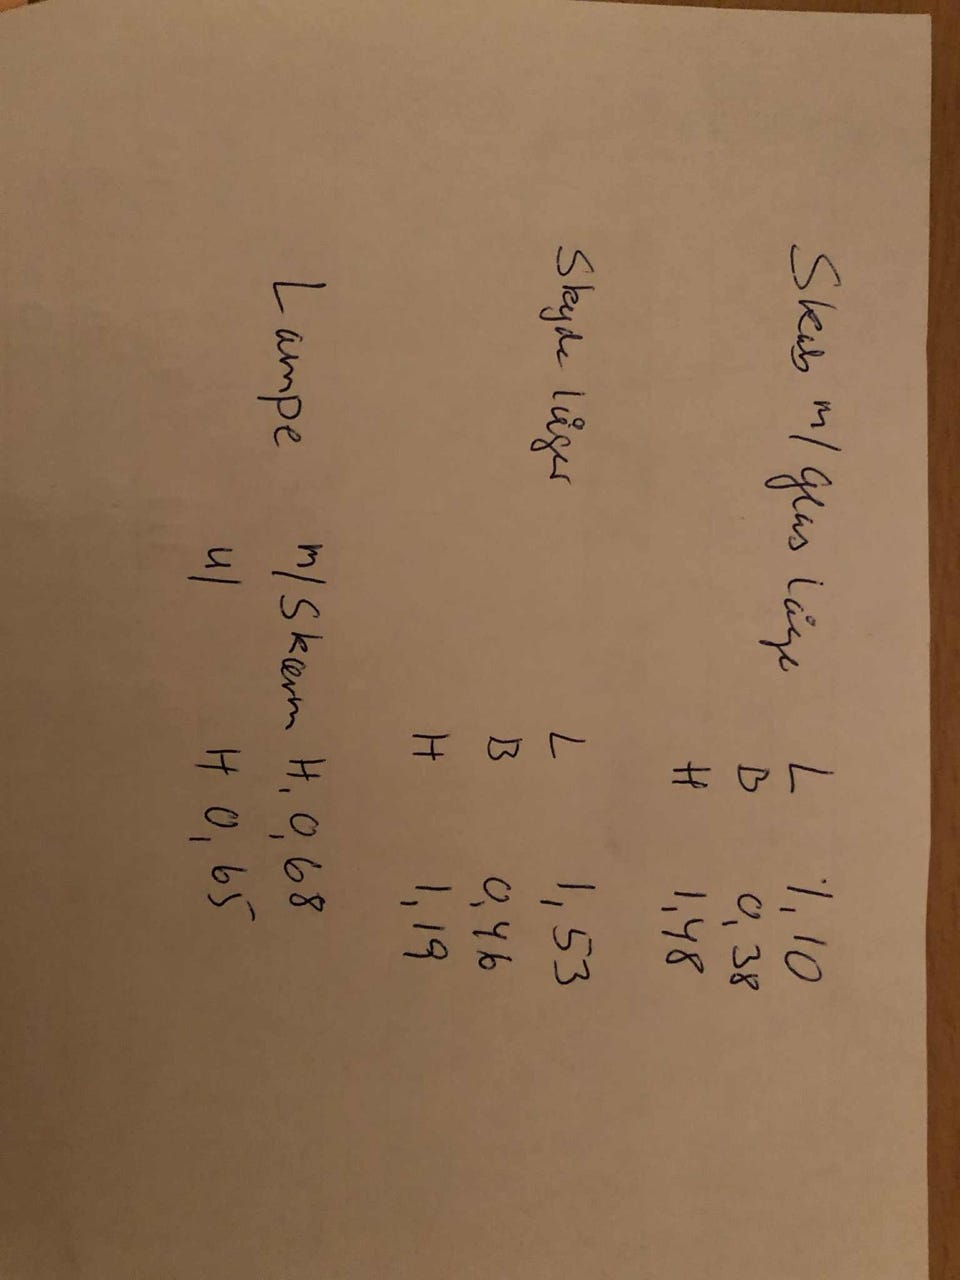 Skab m/glas låge L 1,10
B 0,38
H 1,48
Skyde låger L 1,53
B 0,46
H 1,19
Lampe m/Skærm H. 0,68
u/ H 0,65